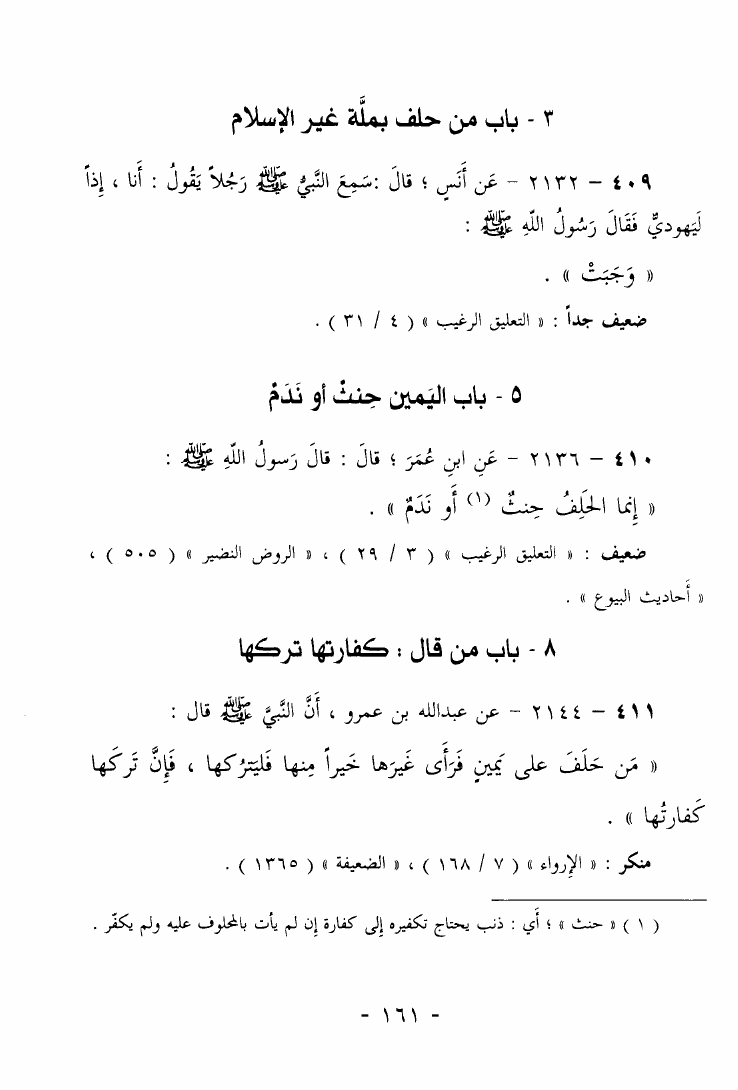 ٣ - باب من حلف بملَّة غير الإسلام
٤٠٩ – ٢١٣٢ – عَن أَنَسٍ ؛ قالَ :سَمِعَ النَّبيُّ ﷺ رَجُلاً يَقُولُ : أَنا ، إِذاً
لَيَهوديٌّ فَقَالَ رَسُولُ اللّهِ ﷺ :
« وَجَبَتْ » .
ضعيف جداً : « التعليق الرغيب » ( ٤ / ٣١ ) .
٥ - باب اليَمين حِنثٌ أو نَدَمٌ
٤١٠ – ٢١٣٦ – عَنِ ابنِ عُمَرَ ؛ قالَ : قالَ رَسولُ اللّهِ ﷺ :
« إِنما الحَلِفُ حِنثٌ (١) أَو نَدَمٌ » .
ضعيف : « التعليق الرغيب » ( ٣ / ٢٩ ) ، « الروض النضير » ( ٥٠٥ ) ،
« أَحاديث البيوع » .
٨ - باب من قال : كفارتها تركها
٤١١ – ٢١٤٤ – عن عبدالله بن عمرو ، أَنَّ النَّبيَّ ﷺ قال :
« مَن حَلَفَ على يَمينٍ فَرَأَى غَيرَها خَيراً مِنها فَليَترُكها ، فَإِنَّ تَركَها
كَفارتُها » .
منكر : « الإِرواء » ( ٧ / ١٦٨ ) ، « الضعيفة » ( ١٣٦٥ ) .
( ١ ) « حنث » ؛ أَي : ذنب يحتاج تكفيره إِلى كفارة إِن لم يأت بالمحلوف عليه ولم يكفّر .
- ١٦١ -